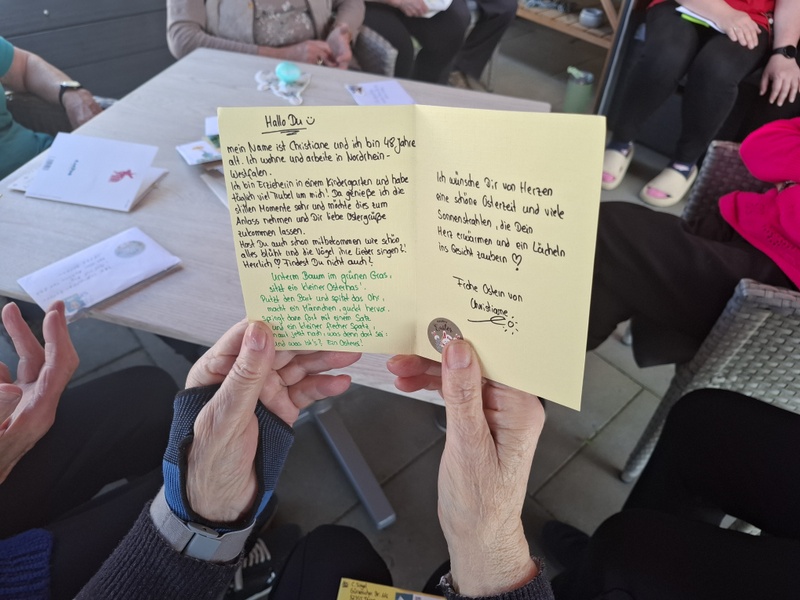 Hallo Du
mein Name ist Christiane und ich bin 48 Jahre
alt. Ich wohne und arbeite in Nordrhein-
Westfalen.
Ich bin Erzieherin in einem Kindergarten und habe
täglich viel Trubel um mich! Da genieße ich die
stillen Momente sehr und möchte dies zum
Anlass nehmen und Dir liebe Ostergrüße
zukommen lassen.
Hast Du auch schon mitbekommen wie schön
alles blüht und die Vögel ihre Lieder singen?!
Herrlich ♡ Findest Du nicht auch?
Unterm Baum im grünen Gras,
sitzt ein kleiner Osterhas'.
Putzt den Bart und spitzt das Ohr,
macht ein Männchen, guckt hervor,
springt dann fort mit einem Satz
und ein kleiner frecher Spatz,
schaut jetzt nach, was denn dort sei.
und was ist's? Ein Osterei!
Ich wünsche Dir von Herzen
eine schöne Osterzeit und viele
Sonnenstrahlen, die Dein
Herz erwärmen und ein Lächeln
ins Gesicht zaubern ♡
Frohe Ostern von
Christiane